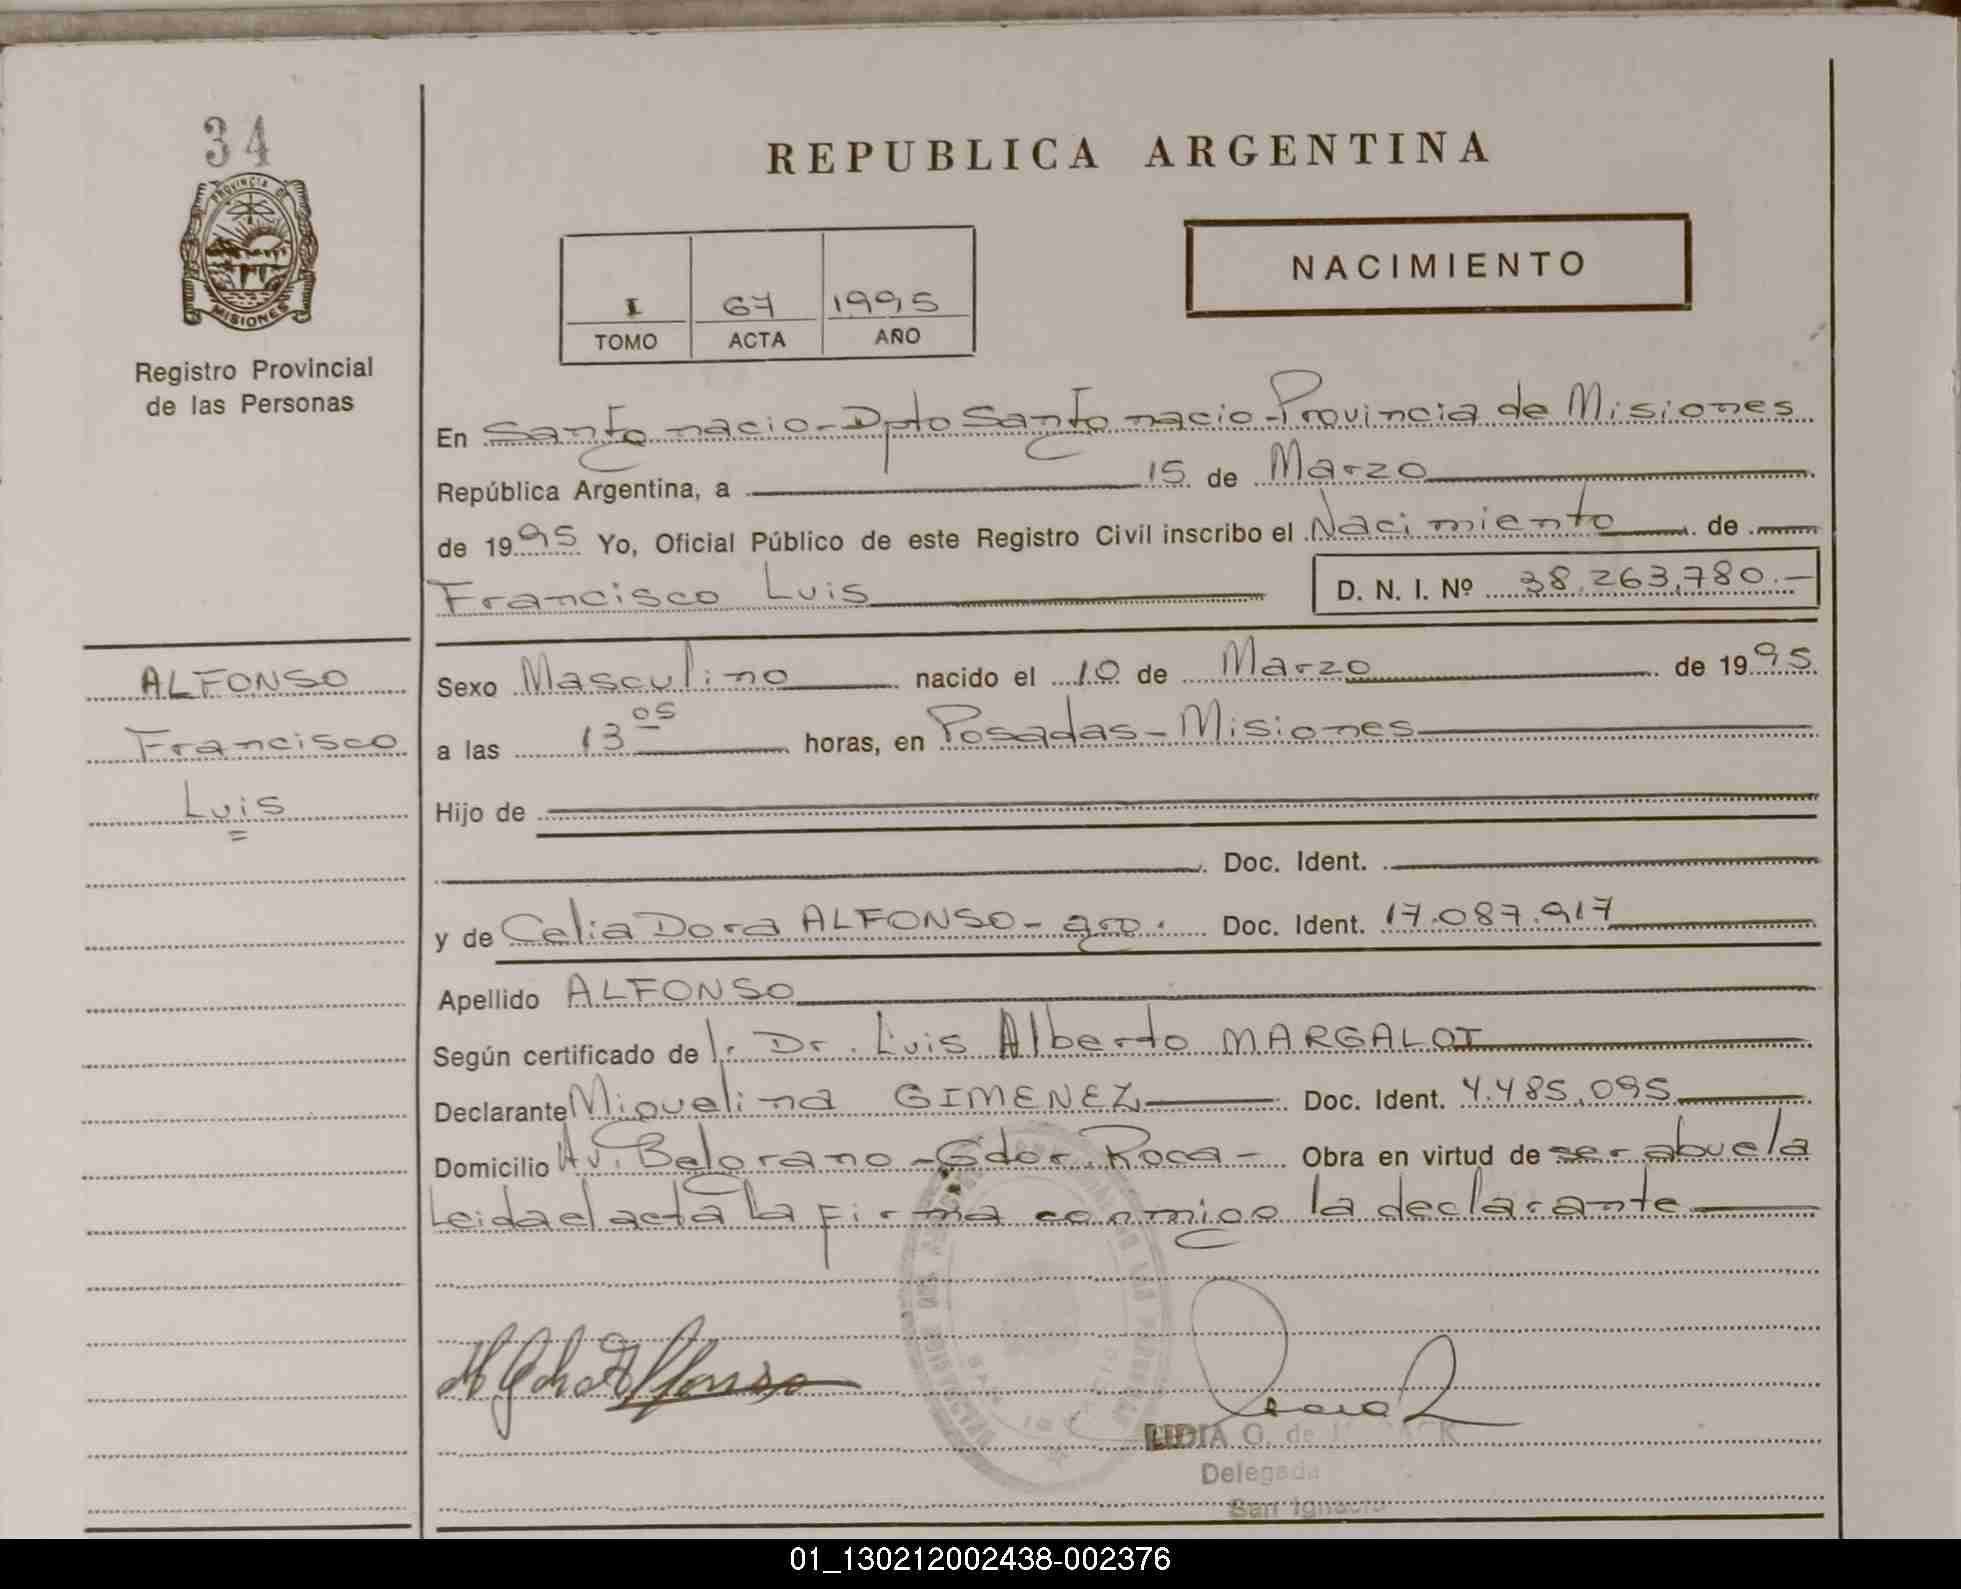 34
PROVINCIA DE
MISIONES
Registro Provincial
de las Personas
REPUBLICA ARGENTINA
NACIMIENTO
I 67 1995
TOMO ACTA AÑO
En San Ignacio - Dpto San Ignacio - Provincia de Misiones
República Argentina, a 15 de Marzo
de 1995 Yo, Oficial Público de este Registro Civil inscribo el Nacimiento de
Francisco Luis D. N. I. Nº 38.263.780.-
ALFONSO
Francisco
Luis
Sexo Masculino nacido el 10 de Marzo de 1995
a las 13 05 horas, en Posadas - Misiones
Hijo de
Doc. Ident.
y de Celia Dora ALFONSO - arg. Doc. Ident. 17.087.917
Apellido ALFONSO
Según certificado de l. Dr. Luis Alberto MARGALOT
Declarante Miguelina GIMENEZ Doc. Ident. 4.485.095
Domicilio Av. Belgrano - Gdor. Roca - Obra en virtud de ser abuela
Leida el acta la firma conmigo la declarante
Alfonso
SAN IGNACIO
LIDIA O. de
Delegada
San Ignacio
01_130212002438-002376